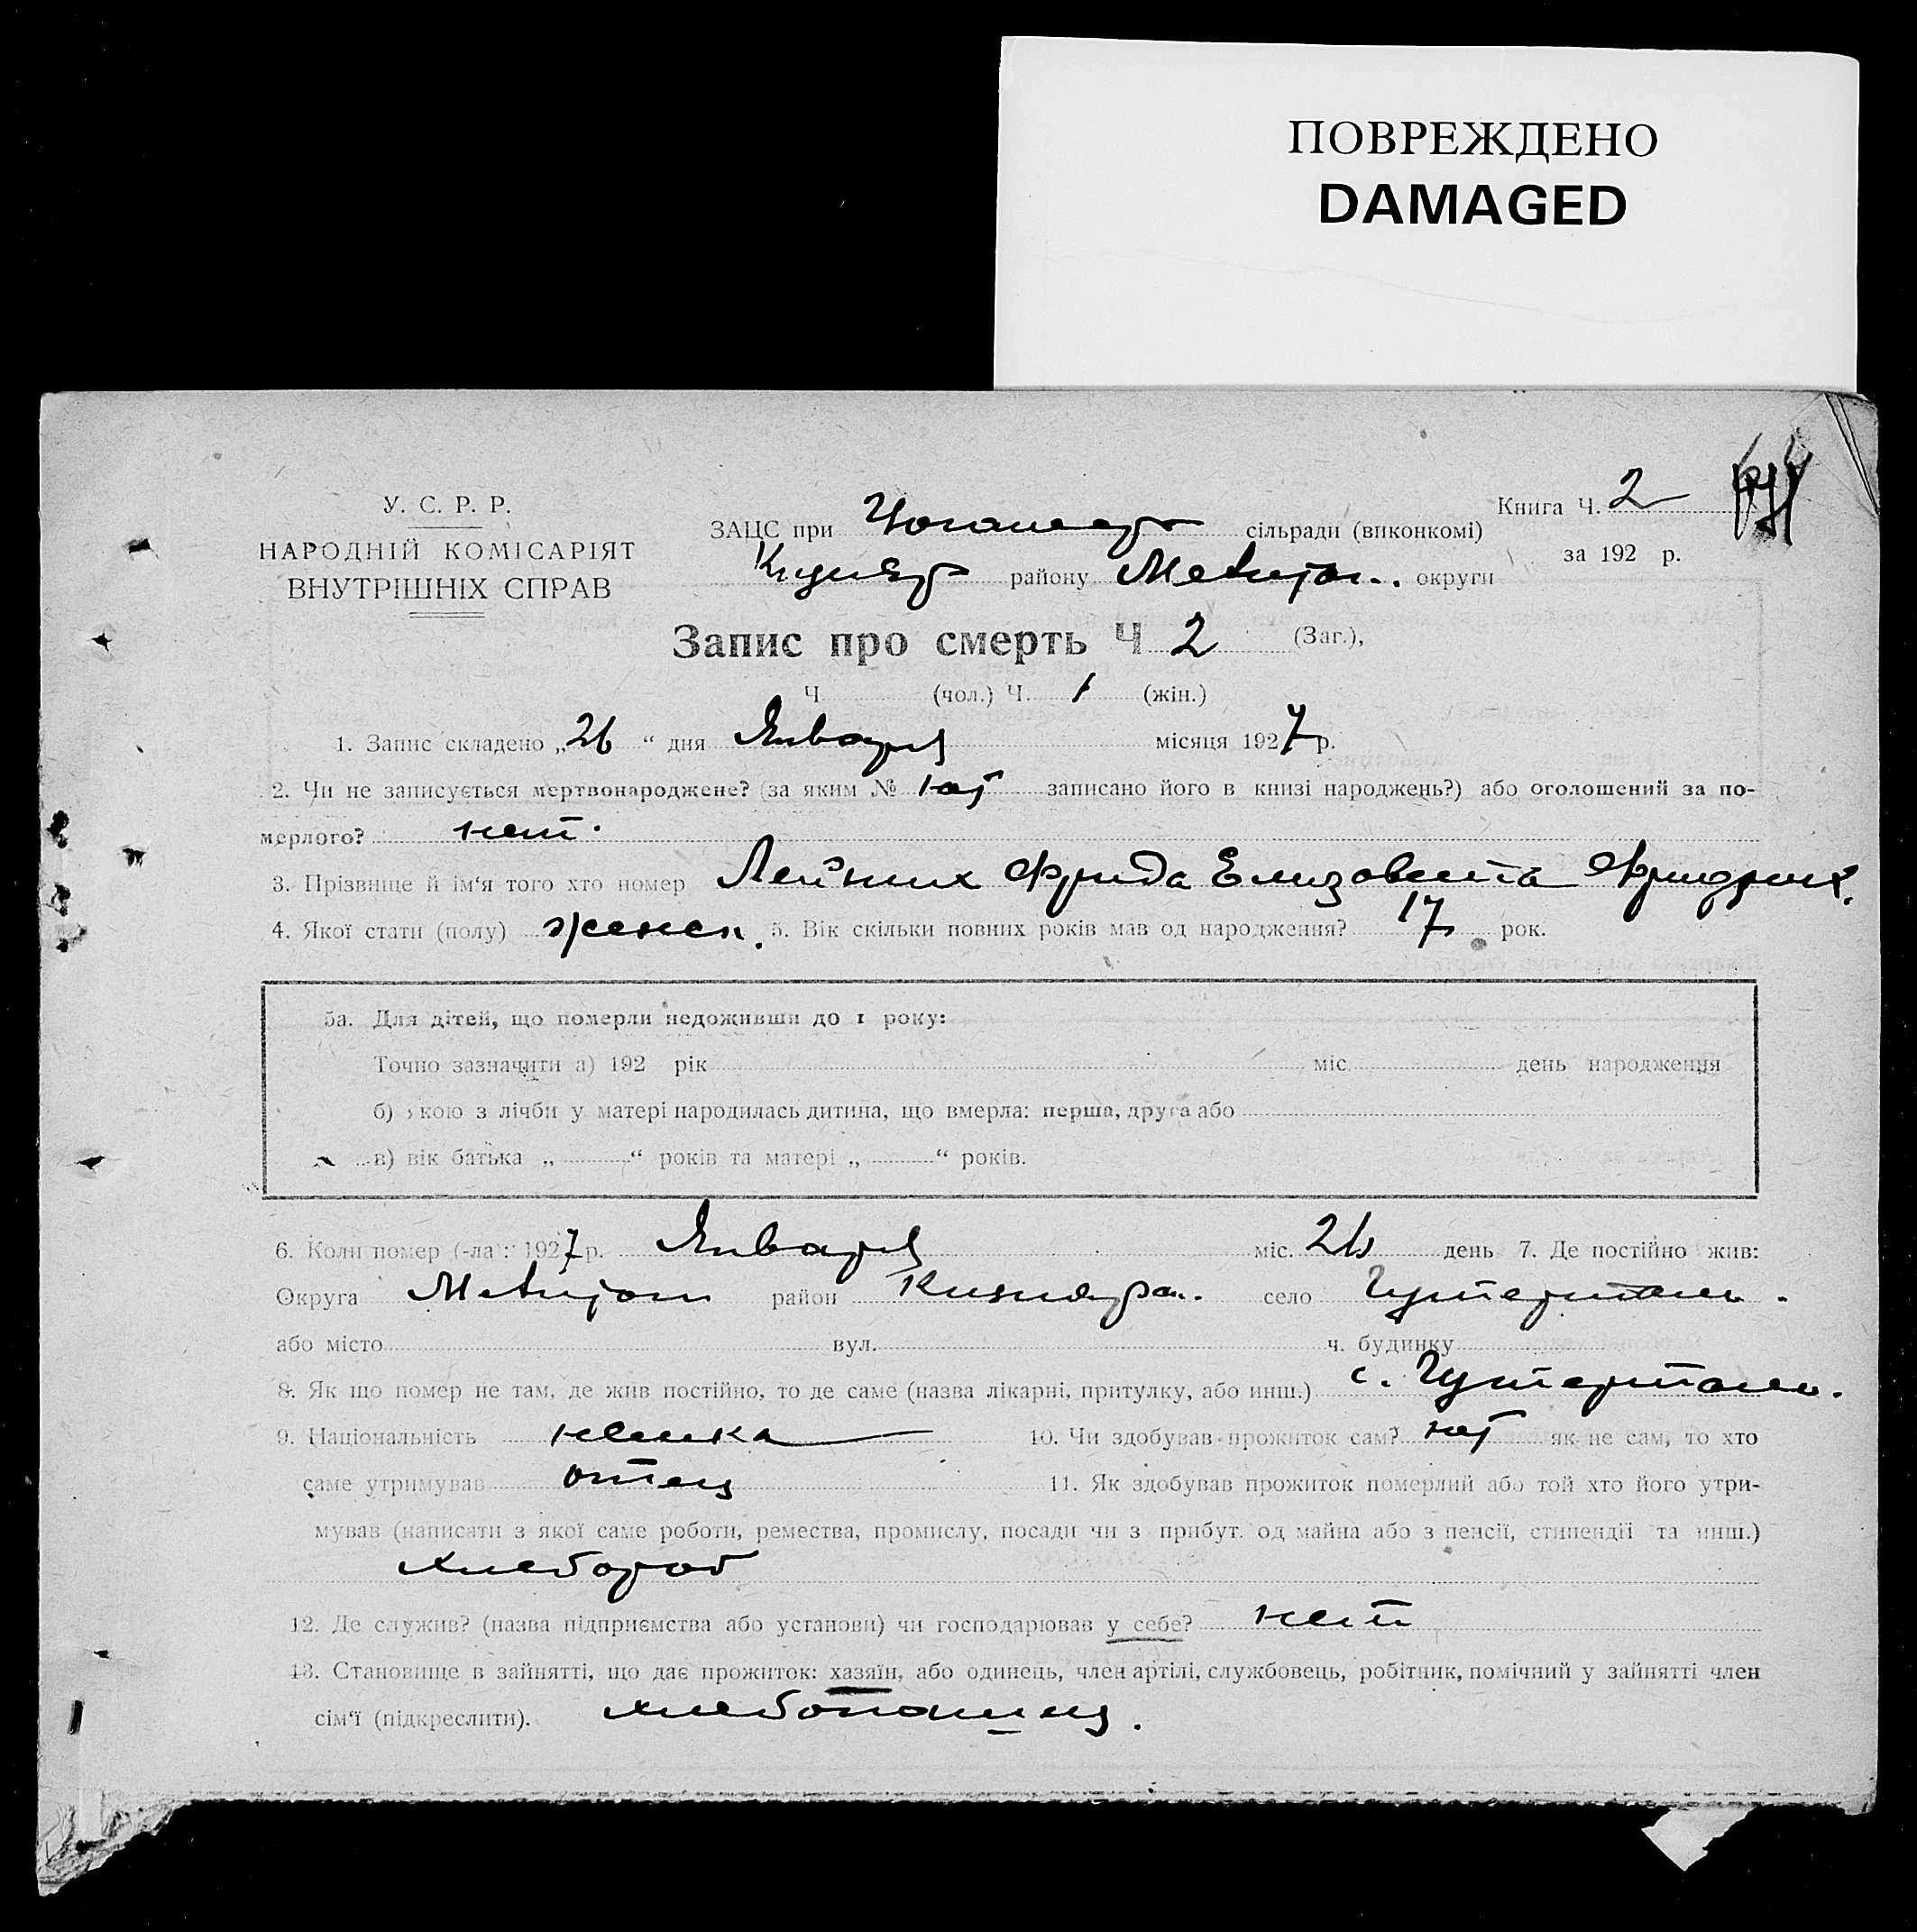 ПОВРЕЖДЕНО
DAMAGED
У. С. Р. Р.
НАРОДНІЙ КОМІСАРІЯТ
ВНУТРІШНІХ СПРАВ
Книга Ч. 2
за 192 р.
ЗАЦС при сільради (виконкомі)
району округи
Запис про смерть Ч 2 (Заг.),
Ч (чол.) Ч. 1 (жін.)
1. Запис складено „26“ дня Января місяця 1927 р.
2. Чи не записується мертвонароджене? (за яким № записано його в книзі народжень?) або оголошений за по-
мерлого? нет.
3. Прізвище й ім'я того хто помер Фрида Елизавета Фридрих.
4. Якої стати (полу) женск. 5. Вік скільки повних років мав од народження? 17 рок.
5а. Для дітей, що померли недоживши до 1 року:
Точно зазначити а) 192 рік міс. день народження
б) якою з лічби у матері народилась дитина, що вмерла: перша, друга або
в) вік батька „ “ років та матері „ “ років.
6. Коли помер (-ла): 1927 р. Января міс. 26 день 7. Де постійно жив:
Округа район село Гутерталь.
або місто вул. ч. будинку
8. Як що помер не там, де жив постійно, то де саме (назва лікарні, притулку, або инш.) с. Гутерталь.
9. Національність немка 10. Чи здобував прожиток сам? як не сам, то хто
саме утримував отец 11. Як здобував прожиток померлий або той хто його утри-
мував (написати з якої саме роботи, ремества, промислу, посади чи з прибут. од майна або з пенсії, стипендії та инш.)
хлебороб
12. Де служив? (назва підприємства або установи) чи господарював у себе? нет
13. Становище в зайнятті, що дає прожиток: хазяїн, або одинець, член артілі, службовець, робітник, помічний у зайнятті член
сім'ї (підкреслити). хлебопашец.